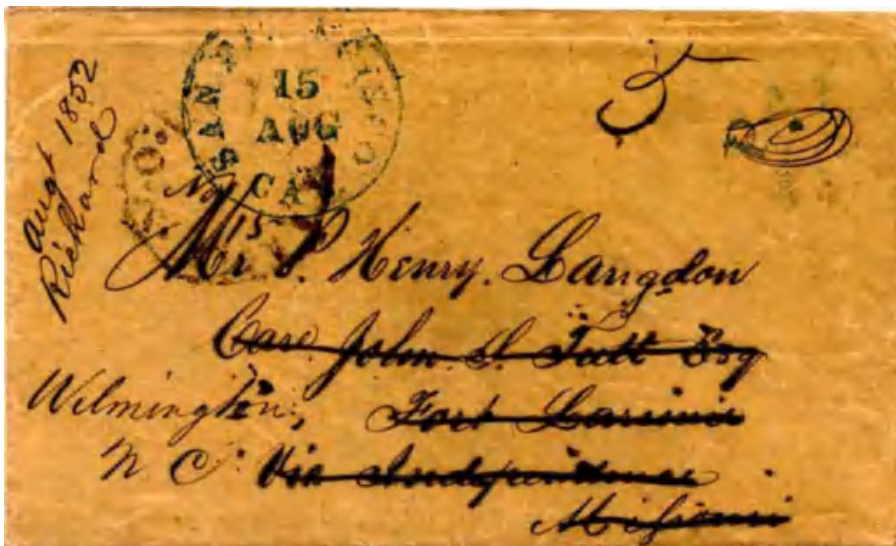 Augt 1852
Richard
SAN FRANCISCO
15
AUG
CAL
5
No 15
Mr P. Henry. Langdon
Care John S. Tutt Esq
Wilmington, Fort Laramie
N C. Via Independence
Missouri